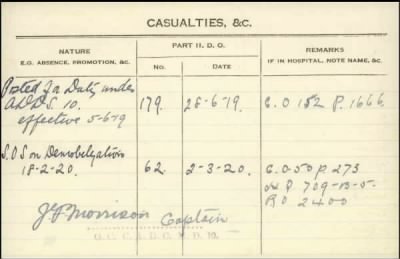 CASUALTIES, &C.
NATURE
E.G. ABSENCE, PROMOTION, &C.
PART II. D. O.
No.
DATE
REMARKS
IF IN HOSPITAL, NOTE NAME, &C.
Posted for Duty under
A.D.D.S. 10. 179. 28-6-19. C.O 152 P. 1666
effective 5-6-19
S.O.S on Demobelization 62. 2-3-20. C.O 50 P 273
18-2-20. P 709-13-5.
R O 2400
J F Morrison Captain